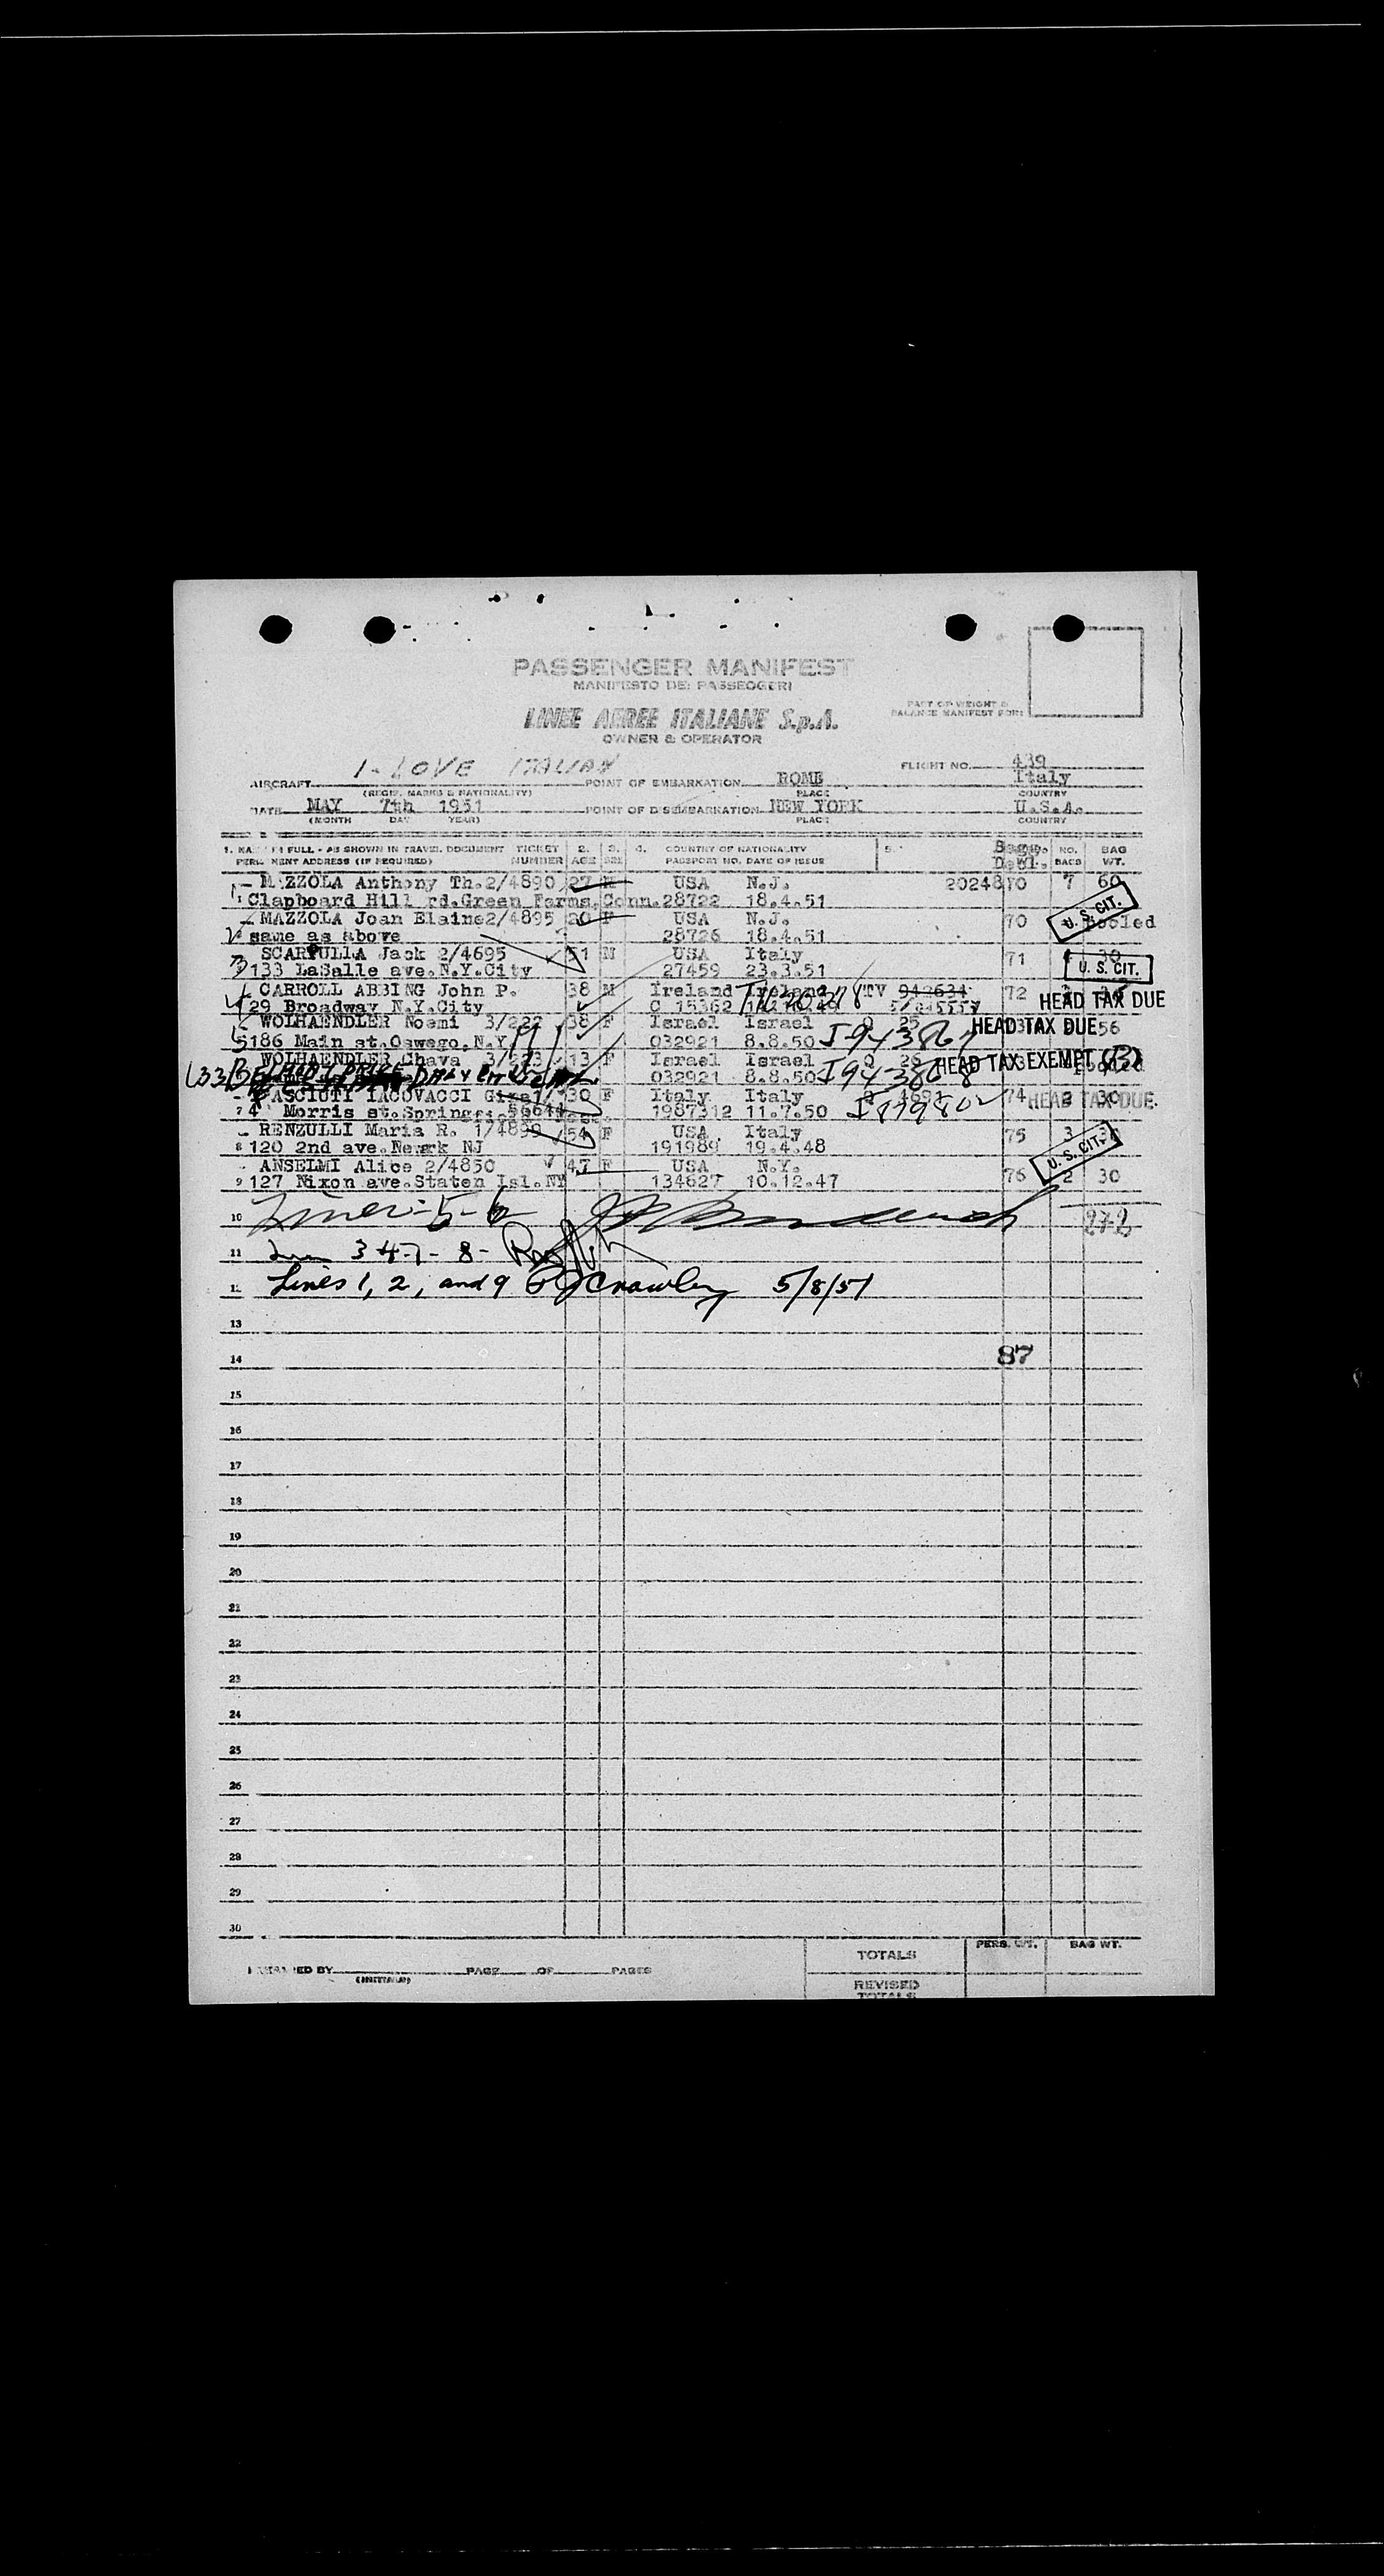 PASSENGER MANIFEST
MANIFESTO DEI PASSEGGERI
LINEE AEREE ITALIANE S.p.A.
OWNER & OPERATOR
PART OF WEIGHT &
BALANCE MANIFEST FOR:
FLIGHT NO. 439
AIRCRAFT I-LOVE ITALIAN POINT OF EMBARKATION ROME Italy
(REGIS. MARKS & NATIONALITY) PLACE COUNTRY
DATE MAY 7th 1951 POINT OF DISEMBARKATION NEW YORK U.S.A.
(MONTH DAY YEAR) PLACE COUNTRY
1. NAME IN FULL - AS SHOWN IN TRAVEL DOCUMENT TICKET 2. 3. 4. COUNTRY OF NATIONALITY 5. Bagg. NO. BAG
PERMANENT ADDRESS (IF REQUIRED) NUMBER AGE SEX PASSPORT NO. DATE OF ISSUE Decl. BAGS WT.
1 MAZZOLA Anthony Th. 2/4890 27 M USA N.J. 20248 70 7 60
Clapboard Hill rd.Green Farms.Conn. 28722 18.4.51
MAZZOLA Joan Elaine 2/4895 20 F USA N.J. 70 Pooled
U. S. CIT.
2 same as above 28726 18.4.51
SCARPULLA Jack 2/4695 51 M USA Italy 71 1 30
3 133 LaSalle ave.N.Y.City 27459 23.3.51
U. S. CIT.
CARROLL ABBING John P. 38 M Ireland Ireland TV 942634 72
HEAD TAX DUE
4 29 Broadway N.Y.City C 15362
WOLHAENDLER Noemi 3/222 38 F Israel Israel Q 25 73 56
HEAD TAX DUE
5 186 Main st.Oswego.N.Y. 032921 8.8.50 I-943867
WOLHAENDLER Chava 3/223 13 F Israel Israel Q 26
HEAD TAX EXEMPT (B)
032921 8.8.50 I943868
FASCIUTI IACOVACCI 30 F Italy Italy 74 2 30
HEAD TAX DUE
7 4 Morris st. 1987312 11.7.50
RENZULLI Maria R. 1/4899 54 F USA Italy 75 3
8 120 2nd ave.Newark NJ 191989 19.4.48
U. S. CIT.
ANSELMI Alice 2/4850 47 F USA N.Y. 76 2 30
9 127 Nixon ave.Staten Isl.NY 134627 10.12.47
10 Lines - 5 - 6 272
11 3 4 - 7 - 8 -
12 Lines 1, 2, and 9 Crowley 5/8/51
13
14 87
15
16
17
18
19
20
21
22
23
24
25
26
27
28
29
30
PERS. WT. BAG WT.
TOTALS
PREPARED BY PAGE OF PAGES
(INITIALS)
REVISED
TOTALS